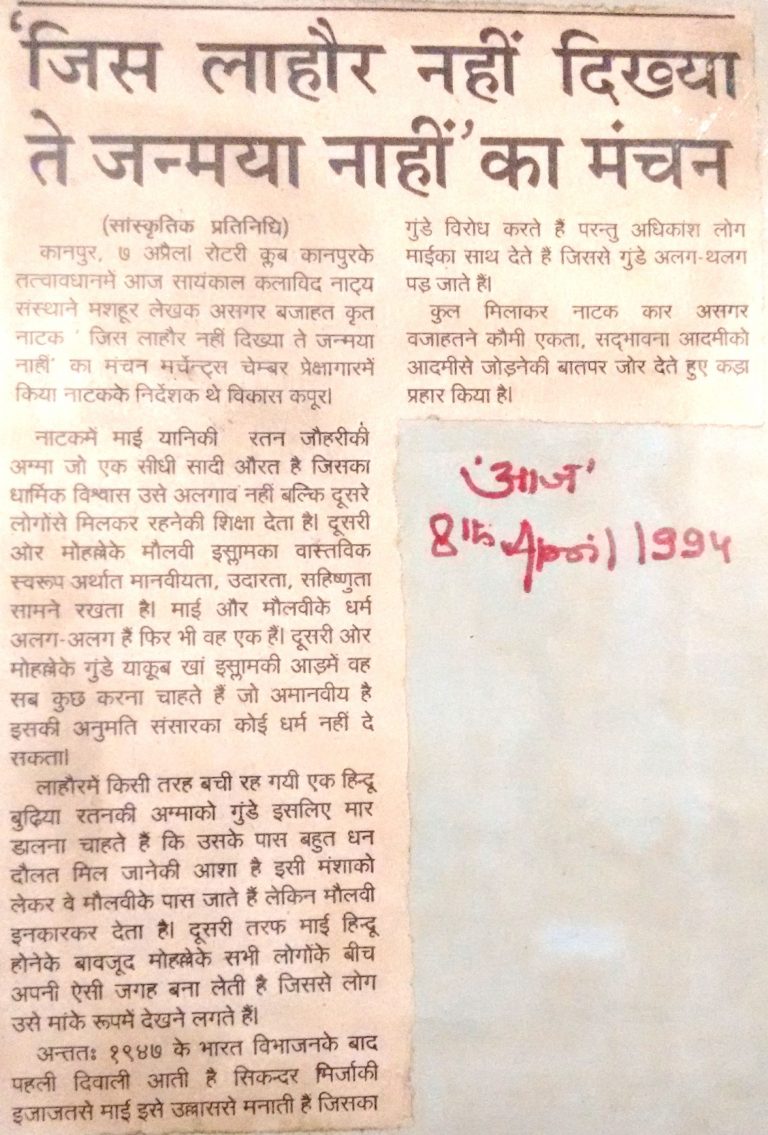 'जिस लाहौर नहीं दिख्या
ते जन्मया नाहीं' का मंचन
(सांस्कृतिक प्रतिनिधि)
कानपुर, ७ अप्रैल। रोटरी क्लब कानपुरके
तत्वावधानमें आज सायंकाल कलाविद नाट्य
संस्थाने मशहूर लेखक असगर बजाहत कृत
नाटक ' जिस लाहौर नहीं दिख्या ते जन्मया
नाहीं' का मंचन मर्चेन्ट्स चेम्बर प्रेक्षागारमें
किया नाटकके निर्देशक थे विकास कपूर।
नाटकमें माई यानिकी रतन जौहरीकी
अम्मा जो एक सीधी सादी औरत है जिसका
धार्मिक विश्वास उसे अलगाव नहीं बल्कि दूसरे
लोगोंसे मिलकर रहनेकी शिक्षा देता है। दूसरी
ओर मोहल्लेके मौलवी इस्लामका वास्तविक
स्वरूप अर्थात मानवीयता, उदारता, सहिष्णुता
सामने रखता है। माई और मौलवीके धर्म
अलग-अलग हैं फिर भी वह एक हैं। दूसरी ओर
मोहल्लेके गुंडे याकूब खां इस्लामकी आड़में वह
सब कुछ करना चाहते हैं जो अमानवीय है
इसकी अनुमति संसारका कोई धर्म नहीं दे
सकता।
लाहौरमें किसी तरह बची रह गयी एक हिन्दू
बुढ़िया रतनकी अम्माको गुंडे इसलिए मार
डालना चाहते हैं कि उसके पास बहुत धन
दौलत मिल जानेकी आशा है इसी मंशाको
लेकर वे मौलवीके पास जाते हैं लेकिन मौलवी
इनकारकर देता है। दूसरी तरफ माई हिन्दू
होनेके बावजूद मोहल्लेके सभी लोगोंके बीच
अपनी ऐसी जगह बना लेती है जिससे लोग
उसे मांके रूपमें देखने लगते हैं।
अन्ततः १९४७ के भारत विभाजनके बाद
पहली दिवाली आती है सिकन्दर मिर्जाकी
इजाजतसे माई इसे उल्लाससे मनाती है जिसका
गुंडे विरोध करते हैं परन्तु अधिकांश लोग
माईका साथ देते हैं जिससे गुंडे अलग-थलग
पड़ जाते हैं।
कुल मिलाकर नाटक कार असगर
वजाहतने कौमी एकता, सद्‌भावना आदमीको
आदमीसे जोड़नेकी बातपर जोर देते हुए कड़ा
प्रहार किया है।
'आज'
8th April 1994